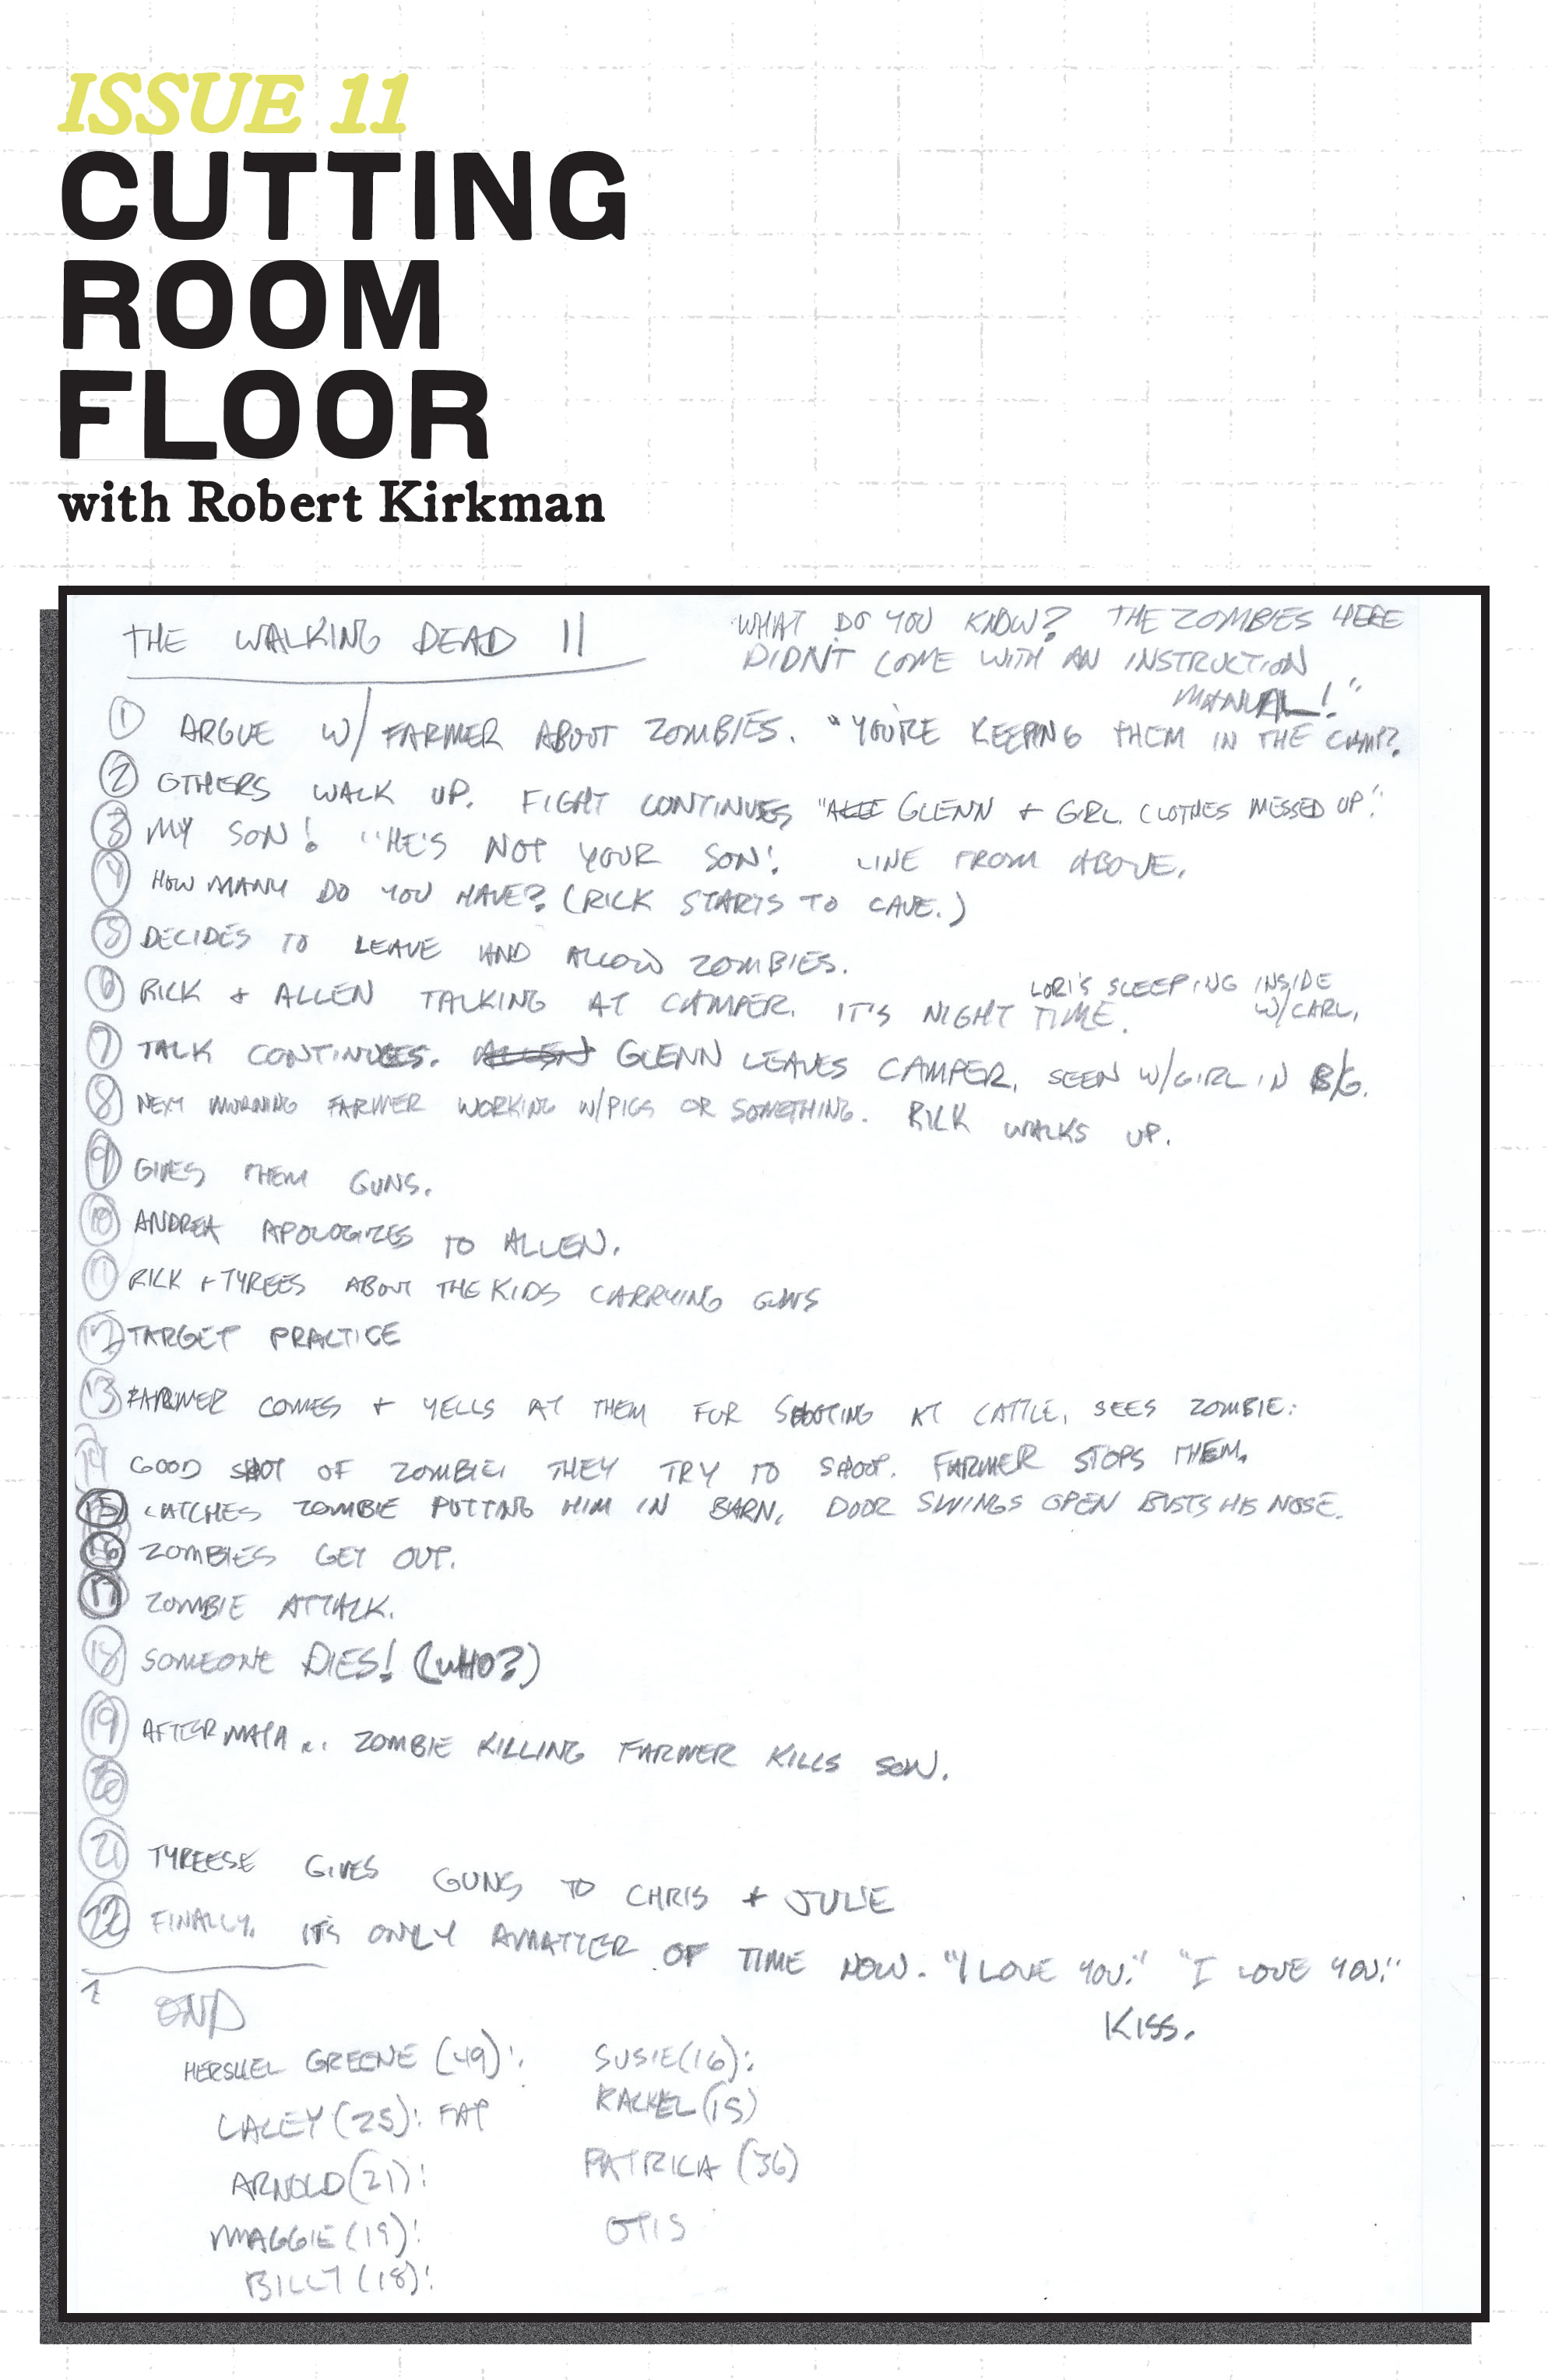 ISSUE 11
CUTTING
ROOM
FLOOR
with Robert Kirkman
THE WALKING DEAD 11
WHAT DO YOU KNOW? THE ZOMBIES HERE
DIDN'T COME WITH AN INSTRUCTION
MANUAL!"
1 ARGUE W/ FARMER ABOUT ZOMBIES. "YOU'RE KEEPING THEM IN THE
2 OTHERS WALK UP. FIGHT CONTINUES " GLENN + GIRL. CLOTHES MESSED UP."
3 MY SON! "HE'S NOT YOUR SON! LINE FROM ABOVE.
4 HOW MANY DO YOU HAVE? (RICK STARTS TO CAVE.)
5 DECIDES TO LEAVE AND ALLOW ZOMBIES.
6 RICK + ALLEN TALKING AT CAMPER. IT'S NIGHT TIME.
LORI'S SLEEPING INSIDE
W/CARL.
7 TALK CONTINUES. ALLEN GLENN LEAVES CAMPER. SEEN W/GIRL IN B/G.
8 NEXT MORNING FARMER WORKING W/PIGS OR SOMETHING. RICK WALKS UP.
9 GIVES THEM GUNS.
10 ANDREA APOLOGIZES TO ALLEN.
11 RICK + TYREES ABOUT THE KIDS CARRYING GUNS
12 TARGET PRACTICE
13 FARMER COMES + YELLS AT THEM FOR SHOOTING AT CATTLE, SEES ZOMBIE.
14 GOOD SHOT OF ZOMBIE. THEY TRY TO SHOOT. FARMER STOPS THEM.
15 CATCHES ZOMBIE PUTTING HIM IN BARN, DOOR SWINGS OPEN BUSTS HIS NOSE.
16 ZOMBIES GET OUT.
17 ZOMBIE ATTACK.
18 SOMEONE DIES! (WHO?)
19 AFTERMATH... ZOMBIE KILLING FARMER KILLS SON.
20
21 TYREESE GIVES GUNS TO CHRIS + JULIE
22 FINALLY. IT'S ONLY A MATTER OF TIME NOW. "I LOVE YOU." "I LOVE YOU."
KISS.
END
HERSHEL GREENE (49):
LACEY (25): FAT
ARNOLD (21):
MAGGIE (19):
BILLY (18):
SUSIE (16):
RACHEL (15)
PATRICA (36)
OTIS